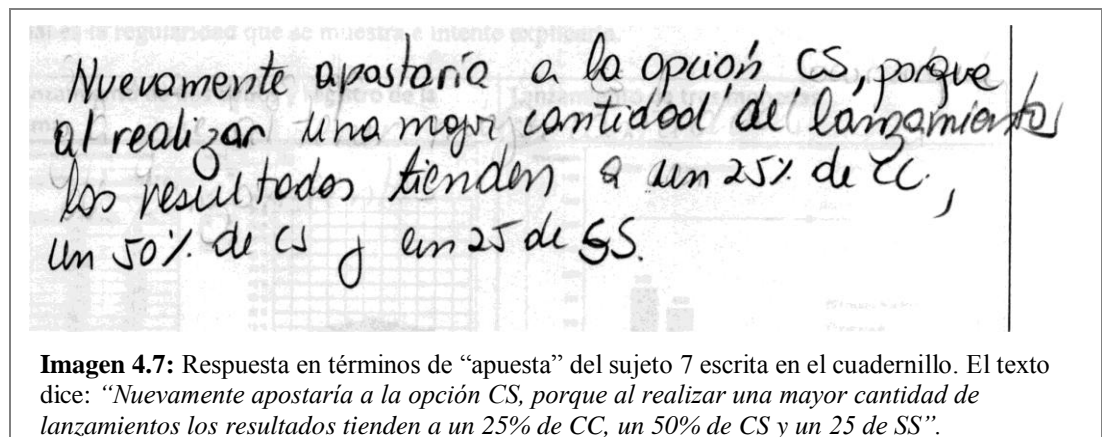 al es la regularidad que se muestra e intento explicarla.
Nuevamente apostaría a la opción CS, porque
al realizar una mayor cantidad de lanzamientos
los resultados tienden a un 25% de CC,
un 50% de CS y un 25 de SS.
Imagen 4.7: Respuesta en términos de “apuesta” del sujeto 7 escrita en el cuadernillo. El texto
dice: “Nuevamente apostaría a la opción CS, porque al realizar una mayor cantidad de
lanzamientos los resultados tienden a un 25% de CC, un 50% de CS y un 25 de SS”.